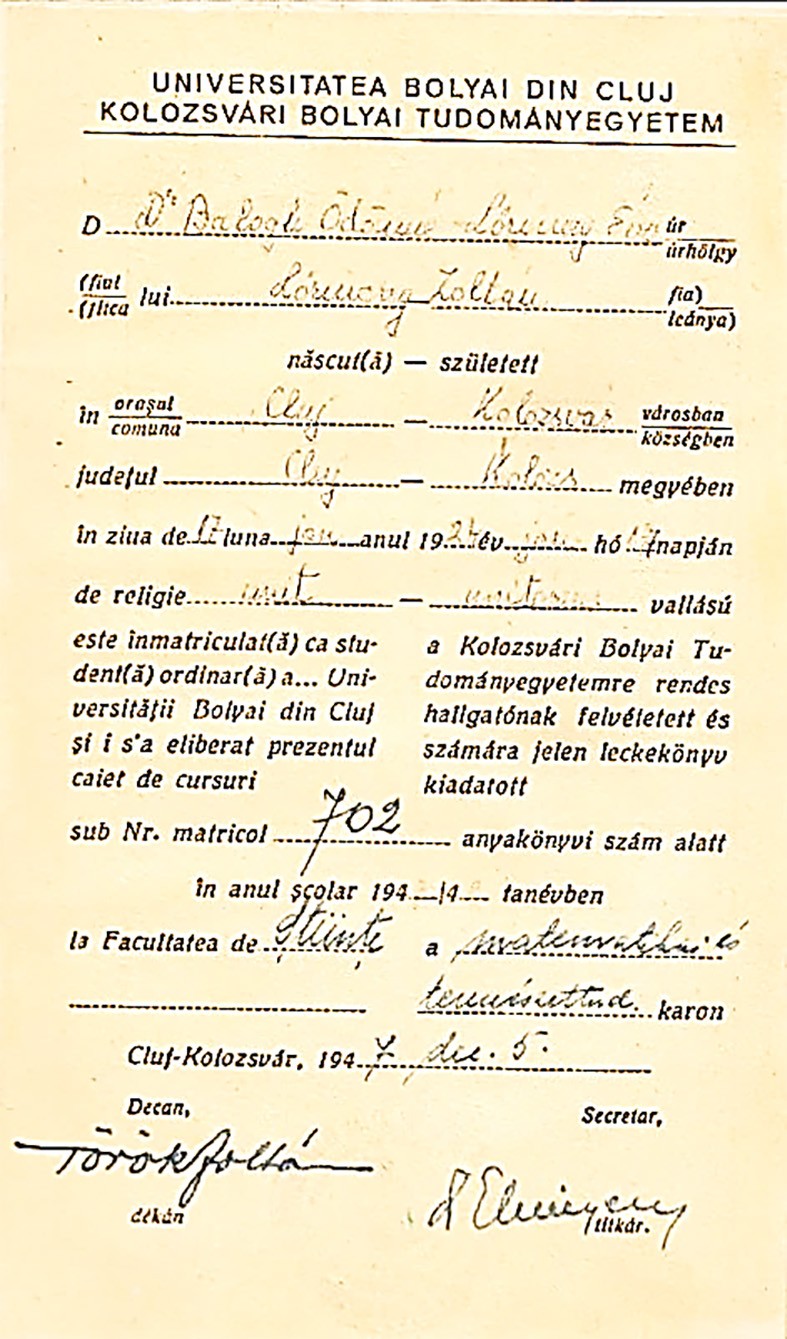 UNIVERSITATEA BOLYAI DIN CLUJ
KOLOZSVÁRI BOLYAI TUDOMÁNYEGYETEM
D Dr Balogh Ödönné Lőrinczy Éva úr
úrhölgy
(fiul
(fiica lui Lőrinczy Zoltán fia)
leánya)
născut(ă) — született
în orașul
comuna Cluj — Kolozsvár városban
községben
județul Cluj — Kolozs megyében
în ziua de 17 luna jan anul 192 év jan hó 17 napján
de religie unit — vallású
este înmatriculat(ă) ca stu- a Kolozsvári Bolyai Tu-
dent(ă) ordinar(ă) a... Uni- dományegyetemre rendes
versității Bolyai din Cluj hallgatónak felvétetett és
și i s'a eliberat prezentul számára jelen leckekönyv
caiet de cursuri kiadatott
sub Nr. matricol 702 anyakönyvi szám alatt
în anul școlar 194 /4 tanévben
la Facultatea de Științe a matematikai és
természettud. karon
Cluj-Kolozsvár, 194 7 dec. 5.
Decan, Secretar,
Török Zoltán
dékán titkár.